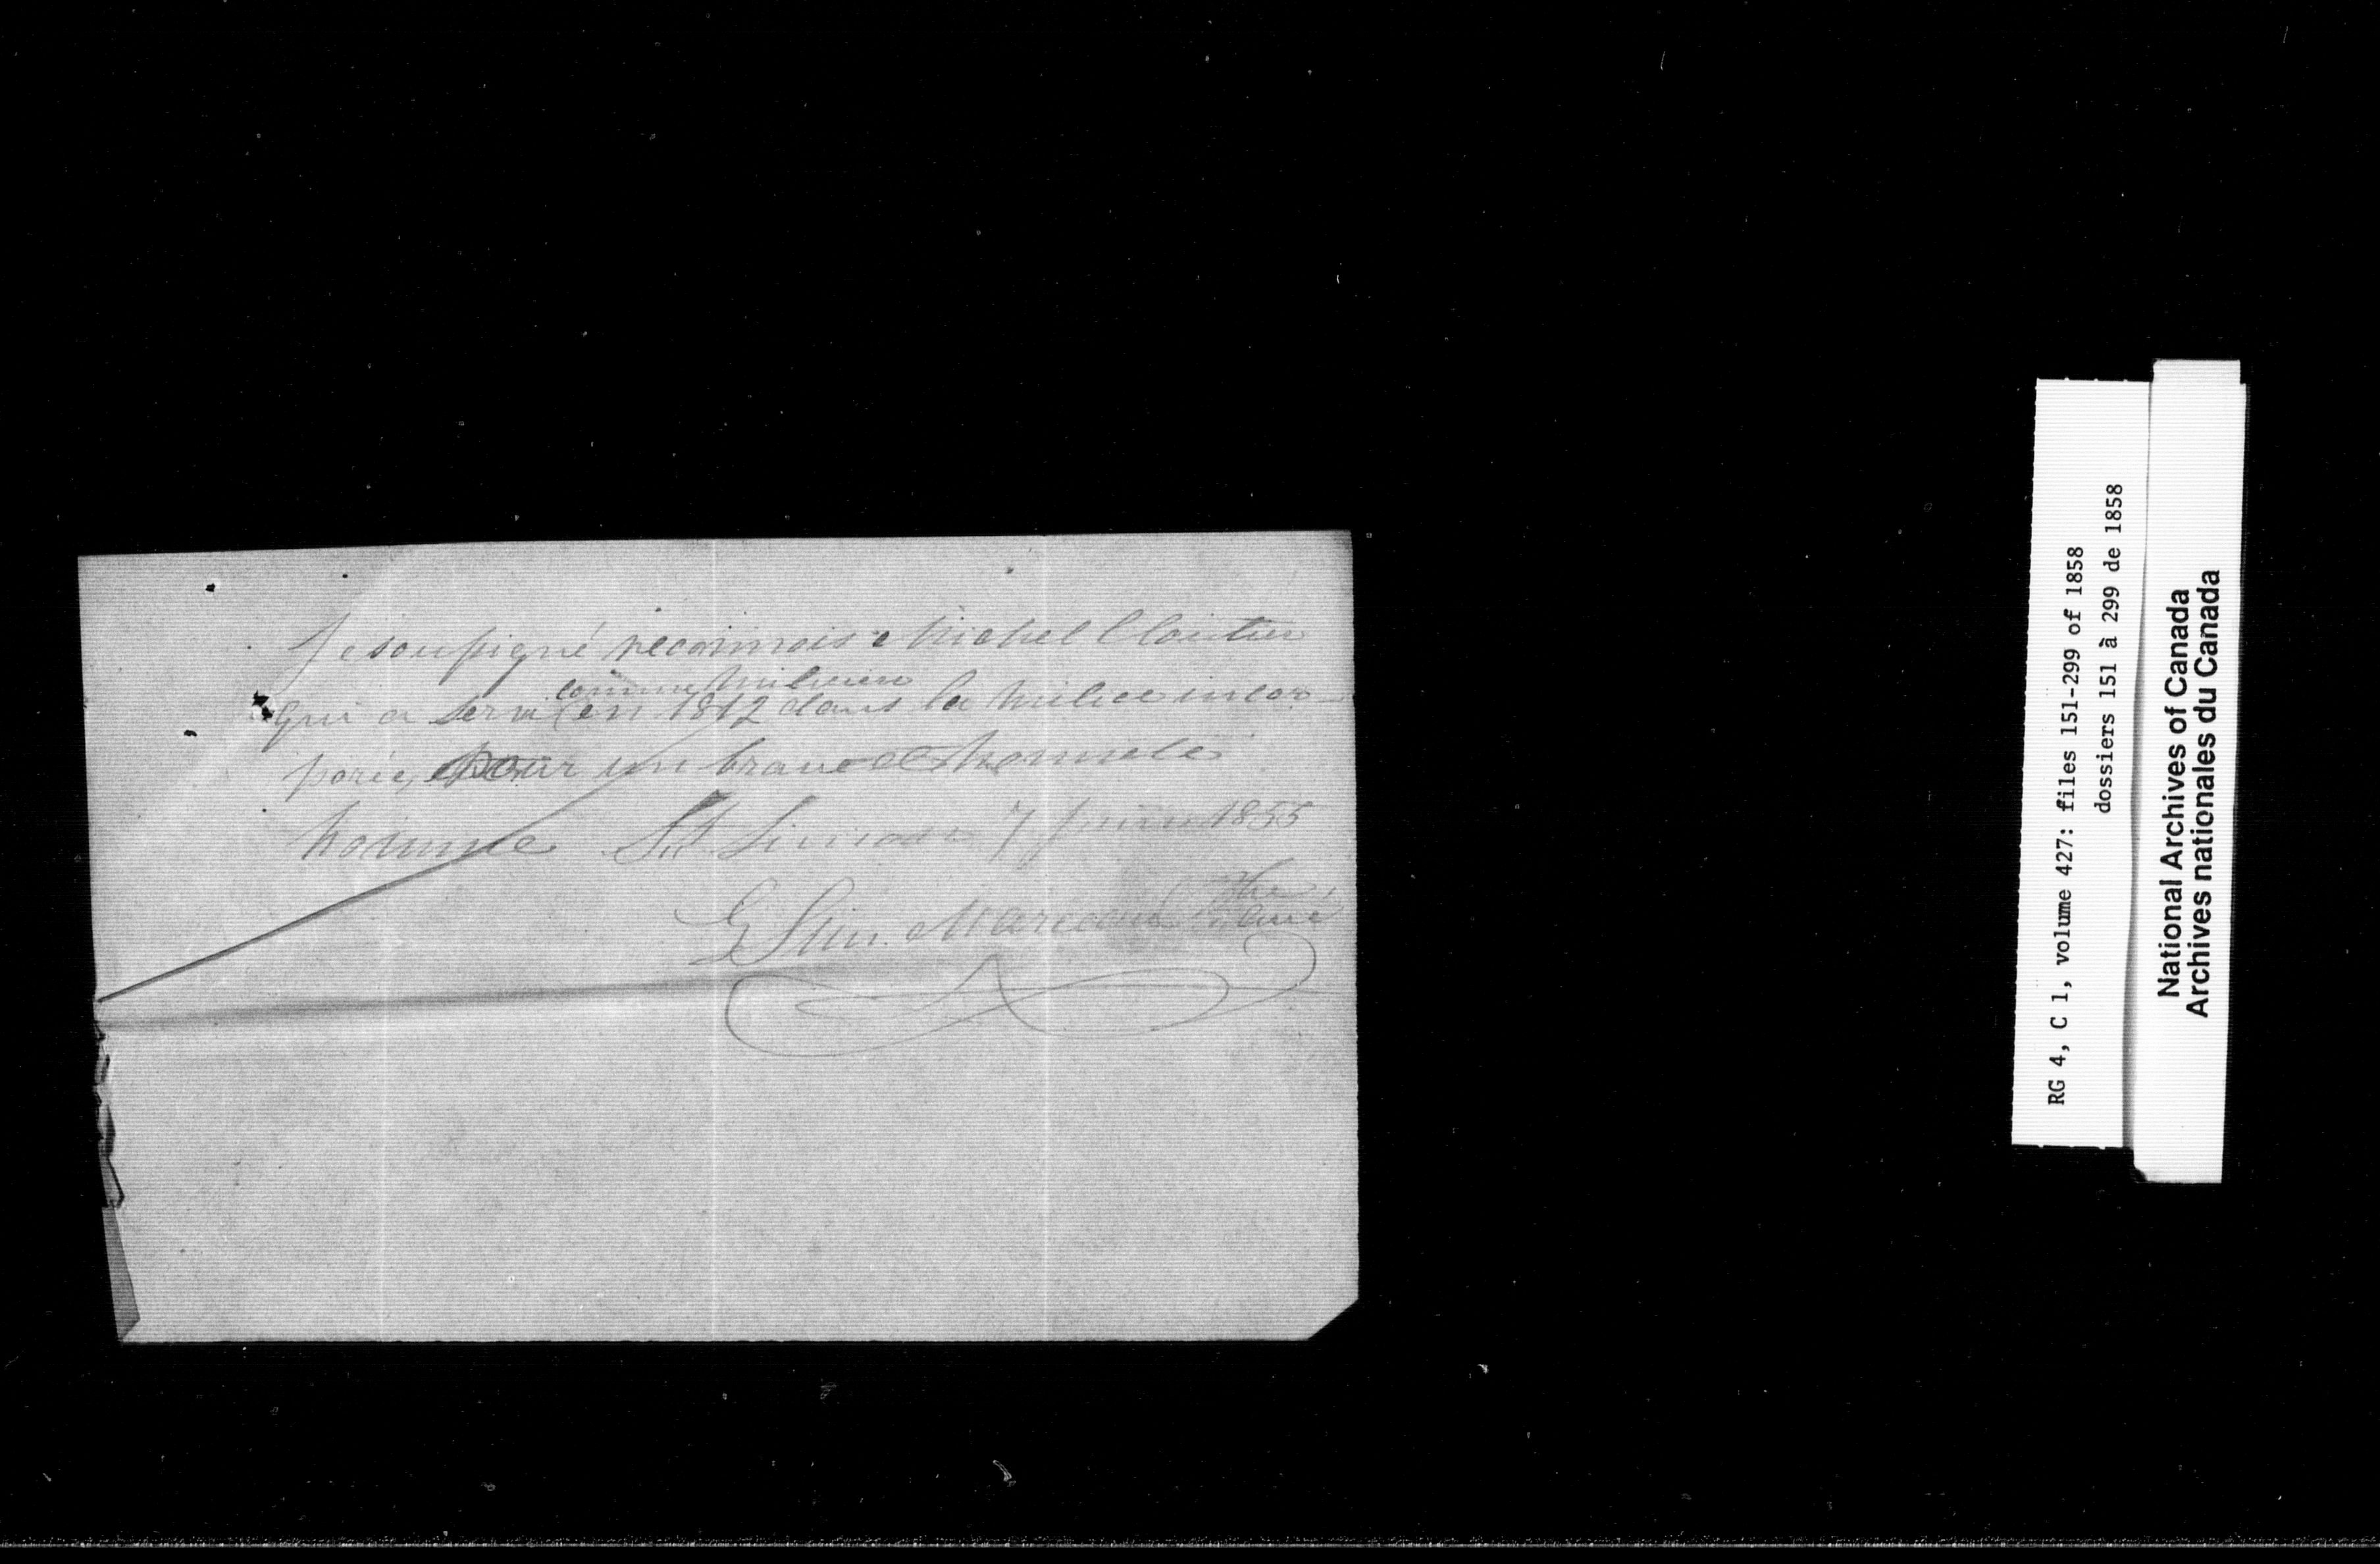 Je soussigné reconnois Michel Cloutier
comme milicien
qui a servi en 1812 dans la milice incor-
porée, pour un brave et honnete
homme St Simon 7 Juin 1855
G Slin. Marceau Ptre
Curé
RG 4, C 1, volume 427: files 151-299 of 1858
dossiers 151 à 299 de 1858
National Archives of Canada
Archives nationales du Canada